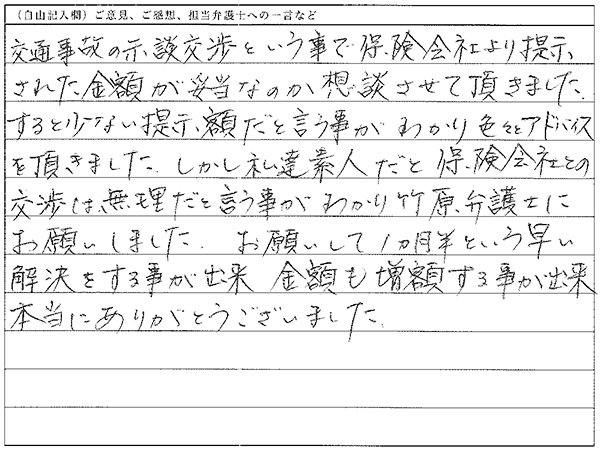 （自由記入欄）ご意見、ご感想、担当弁護士への一言など
交通事故の示談交渉という事で保険会社より提示
された金額が妥当なのか想談させて頂きました.
すると少ない提示額だと言う事がわかり色々とアドバイス
を頂きました. しかし私達素人だと保険会社との
交渉は無理だと言う事がわかり竹原弁護士に
お願いしました. お願いして1カ月半という早い
解決をする事が出来 金額も増額する事が出来
本当にありがとうございました.